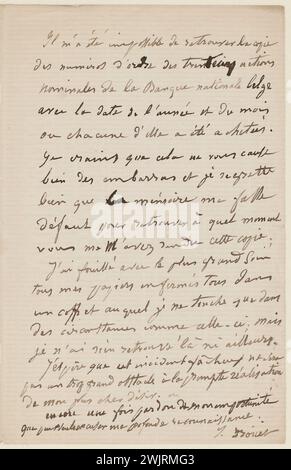 Il m'a été impossible de retrouver la copie
des numéros d'ordre des trente cinq actions
nominales de la Banque nationale belge
avec la date de l'année et du mois
ou chacune d'elle a été achetée.
Je crains que cela ne vous cause
bien des embarras et je regrette
bien que la mémoire me fasse
défaut pour retrouver à quel moment
vous me l'avez rendre cette copie;
J'ai fouillé avec le plus grand soin
tous mes papiers enfermés tous dans
un coffre auquel je ne touche que dans
des circonstances comme celle-ci; mais
je n'ai rien retrouvé là ni ailleurs.
J'espère que cet incident fâcheux ne sera
pas un trop grand obstacle à la prompte réalisation
de mon plus cher désir.
encore une fois pardon de mon importunité
que me profonde reconnaissance.
J. Drouet
alamy
Image ID: 2WJRMG3
www.alamy.com